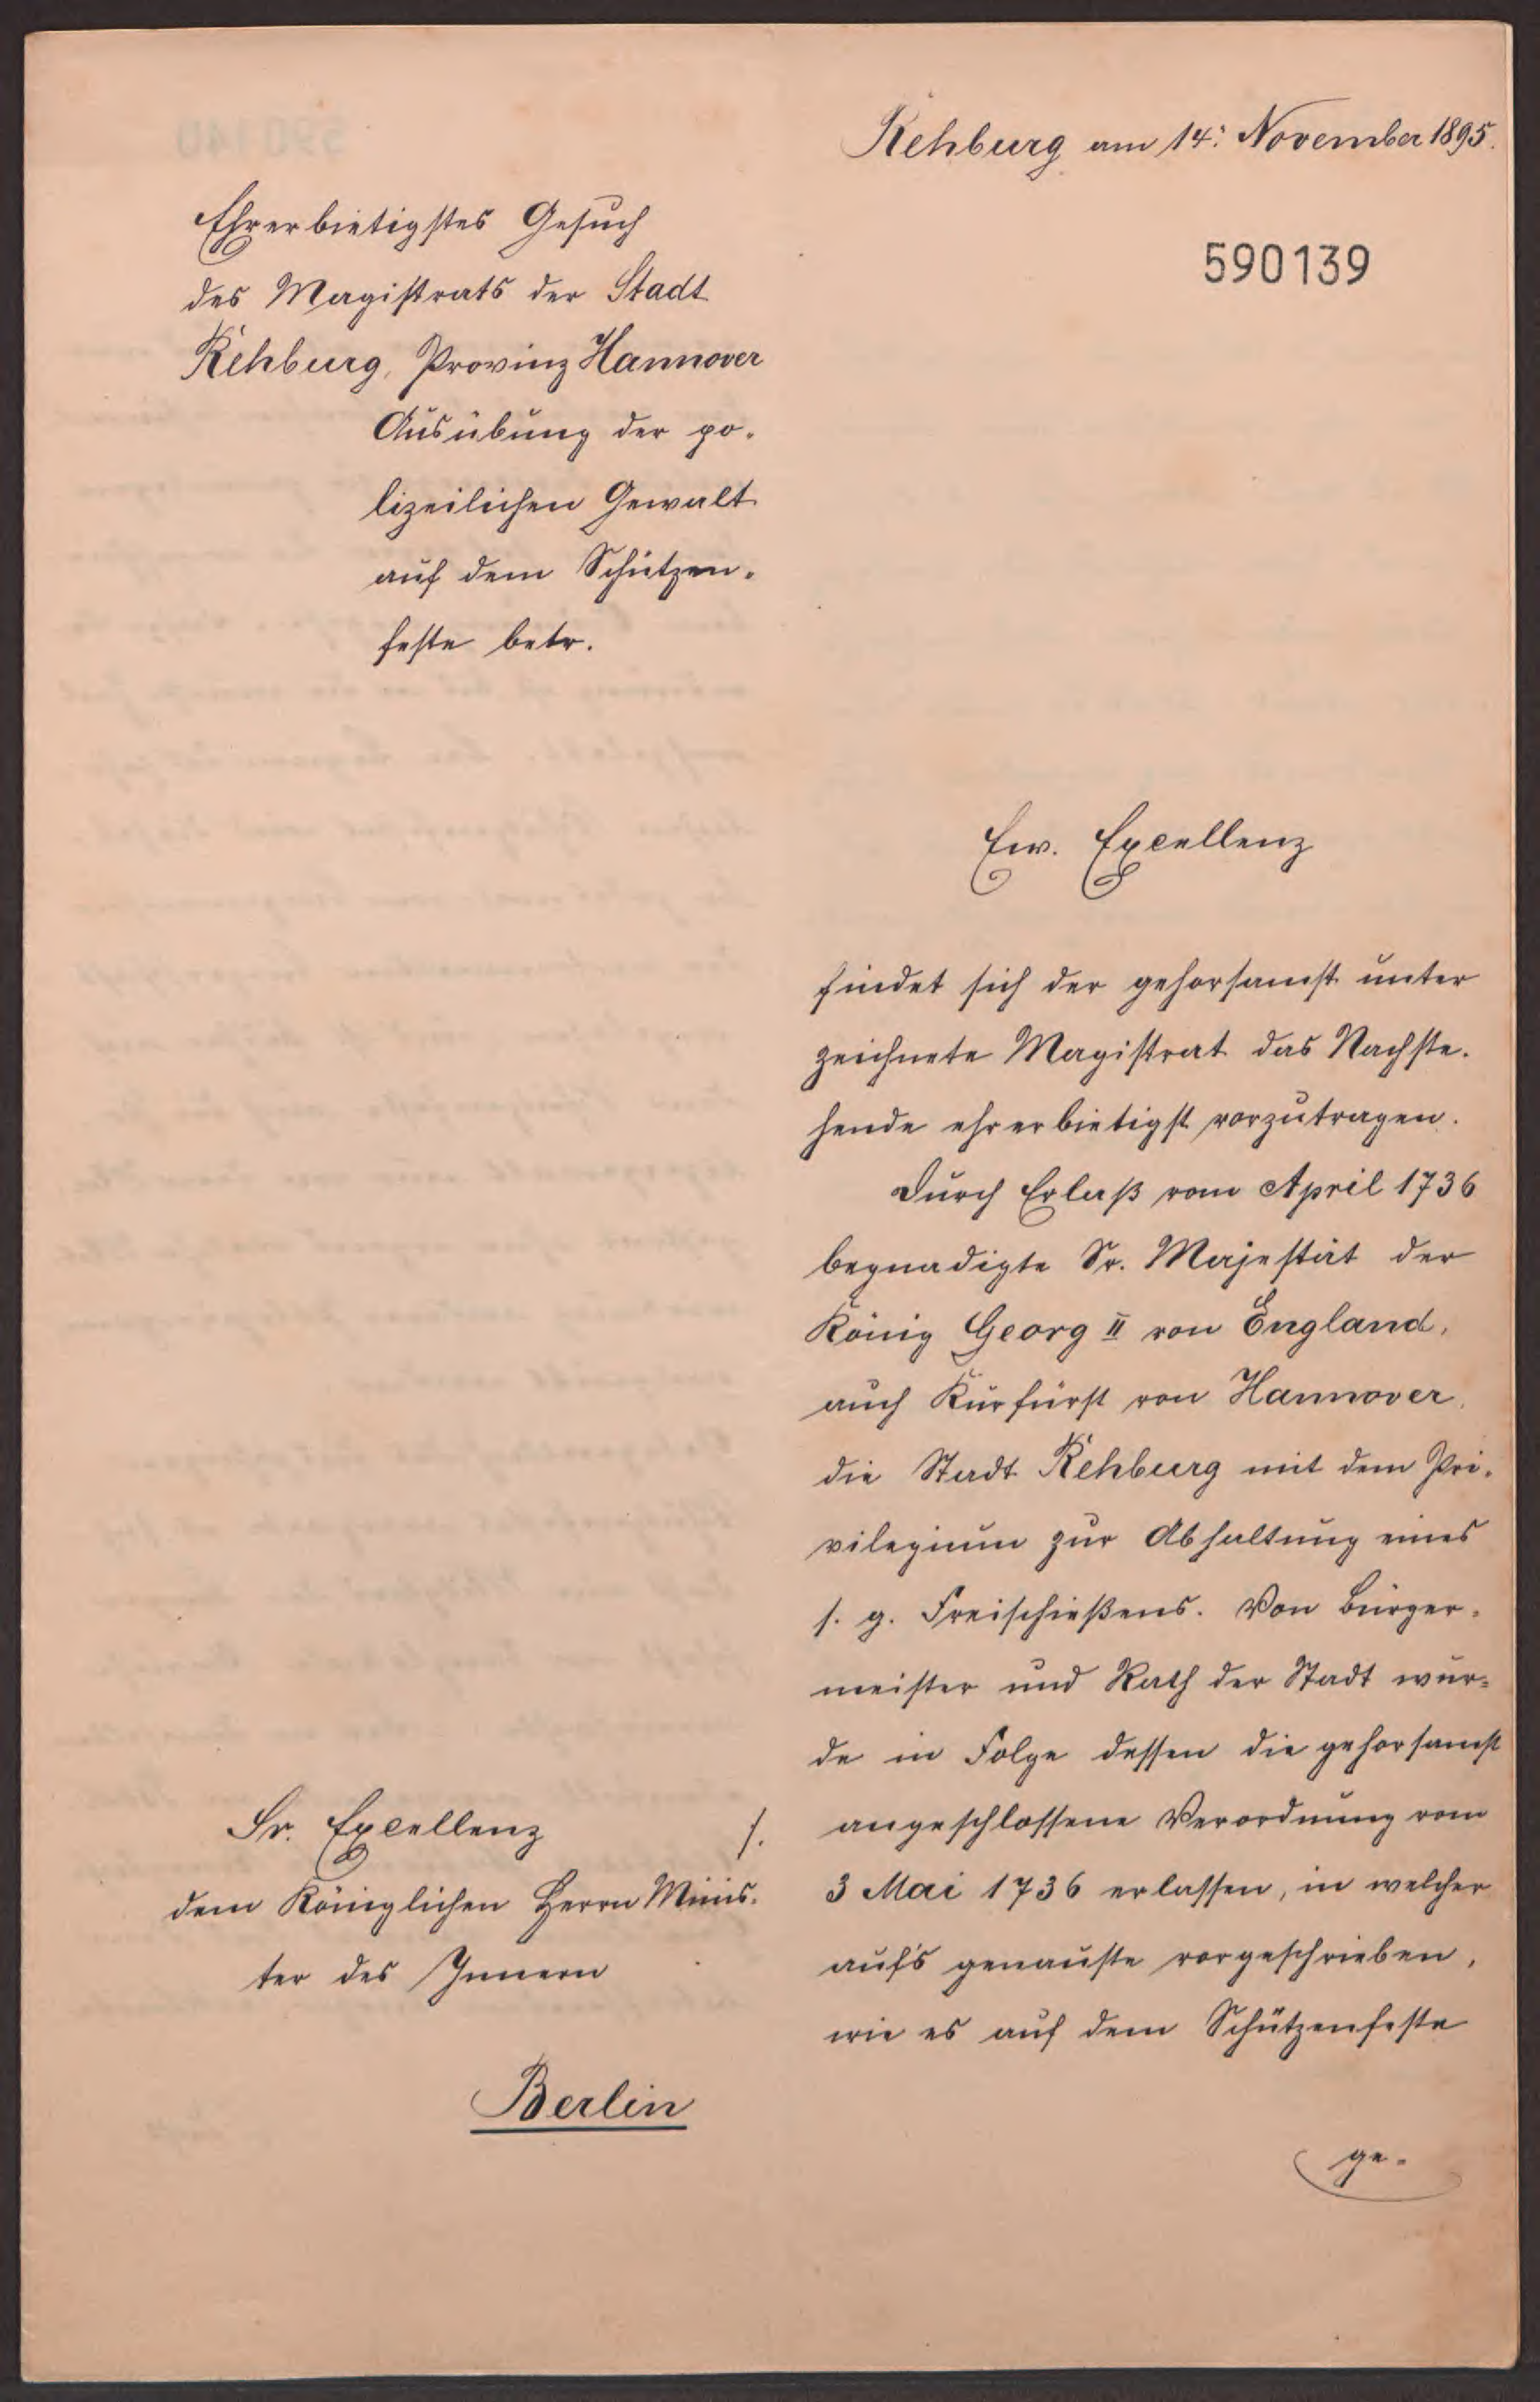 Rehburg am 14. November 1895.
590139
Ehrerbietigstes Gesuch
des Magistrats der Stadt
Rehburg, Provinz Hannover
Ausübung der po-
lizeilichen Gewalt
auf dem Schützen-
feste betr.
Ew. Excellenz
findet sich der gehorsamst unter
zeichnete Magistrat das Nachste-
hende ehrerbietigst vorzutragen.
Durch Erlaß vom April 1736
begnadigte Sr. Majestät der
König Georg II von England,
auch Kurfürst von Hannover,
die Stadt Rehburg mit dem Pri-
vilegium zur Abhaltung eines
s. g. Freischießens. Von Bürger-
meister und Rath der Stadt wur-
de in Folge dessen die gehorsamst
angeschlossene Verordnung vom
3 Mai 1736 erlassen, in welcher
aufs genauste vorgeschrieben,
wie es auf dem Schützenfeste
ge-
Sr. Excellenz
dem Königlichen Herrn Minis-
ter des Innern
Berlin